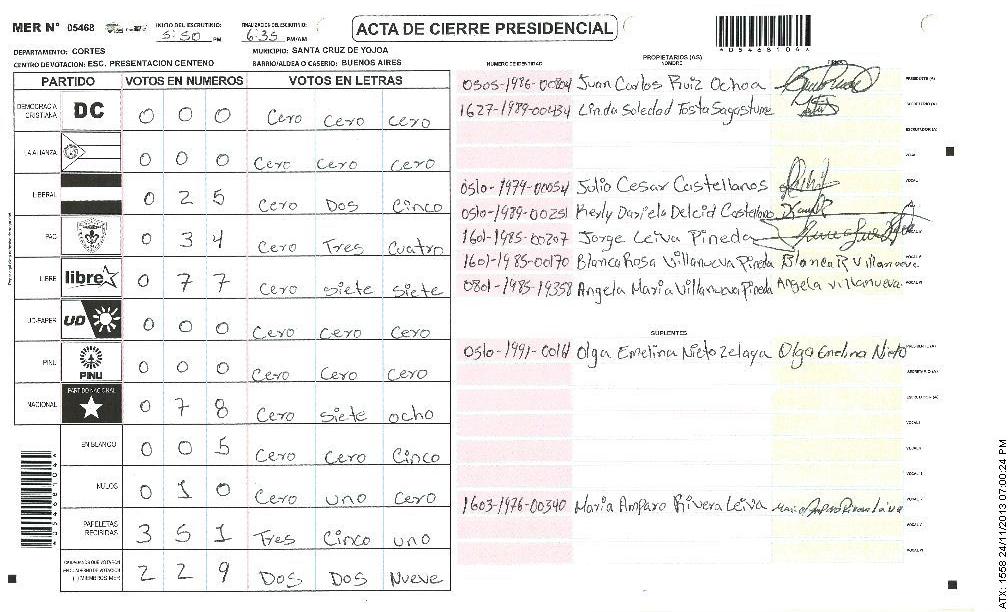 MER N° 05468
INICIO DEL ESCRUTINIO: 5:50 PM
FINALIZACION DEL ESCRUTINIO: 6:35 PM/AM
ACTA DE CIERRE PRESIDENCIAL
DEPARTAMENTO: CORTES
MUNICIPIO: SANTA CRUZ DE YOJOA
CENTRO DE VOTACION: ESC. PRESENTACION CENTENO
BARRIO/ALDEA O CASERIO: BUENOS AIRES
PARTIDO VOTOS EN NUMEROS VOTOS EN LETRAS
DEMOCRACIA CRISTIANA DC 0 0 0 Cero Cero Cero
LA ALIANZA 0 0 0 Cero Cero Cero
LIBERAL 0 2 5 Cero Dos Cinco
PAC 0 3 4 Cero Tres Cuatro
LIBRE libre 0 7 7 Cero siete siete
UD-FAPER UD 0 0 0 Cero Cero Cero
PINU PINU 0 0 0 Cero Cero Cero
NACIONAL PARTIDO NACIONAL 0 7 8 Cero siete ocho
EN BLANCO 0 0 5 Cero Cero Cinco
NULOS 0 1 0 Cero uno Cero
PAPELETAS RECIBIDAS 3 5 1 Tres Cinco uno
2 2 9 Dos Dos Nueve
PROPIETARIOS (AS)
NUMERO DE IDENTIDAD NOMBRE FIRMA
0505-1986-00804 Juan Carlos Ruiz Ochoa PRESIDENTE (A)
1627-1989-00434 Linda Soledad Tosta Sagastume SECRETARIO (A)
ESCRUTADOR (A)
0510-1979-00054 Julio Cesar Castellanos
0510-1989-00251 Kerly Daniela Delcid Castellano
1601-1985-00207 Jorge Leiva Pineda
1601-1985-00170 Blanca Rosa Villanueva Pineda Blanca R Villanueva
0801-1985-19358 Angela Maria Villanueva Pineda Angela villanueva
SUPLENTES
Olga Emelina Nieto Zelaya Olga Emelina Nieto
1603-1976-00340 Maria Amparo Rivera Leiva Maria Amparo Rivera Leiva
ATX: 1558 24/11/2013 07:00:24 PM